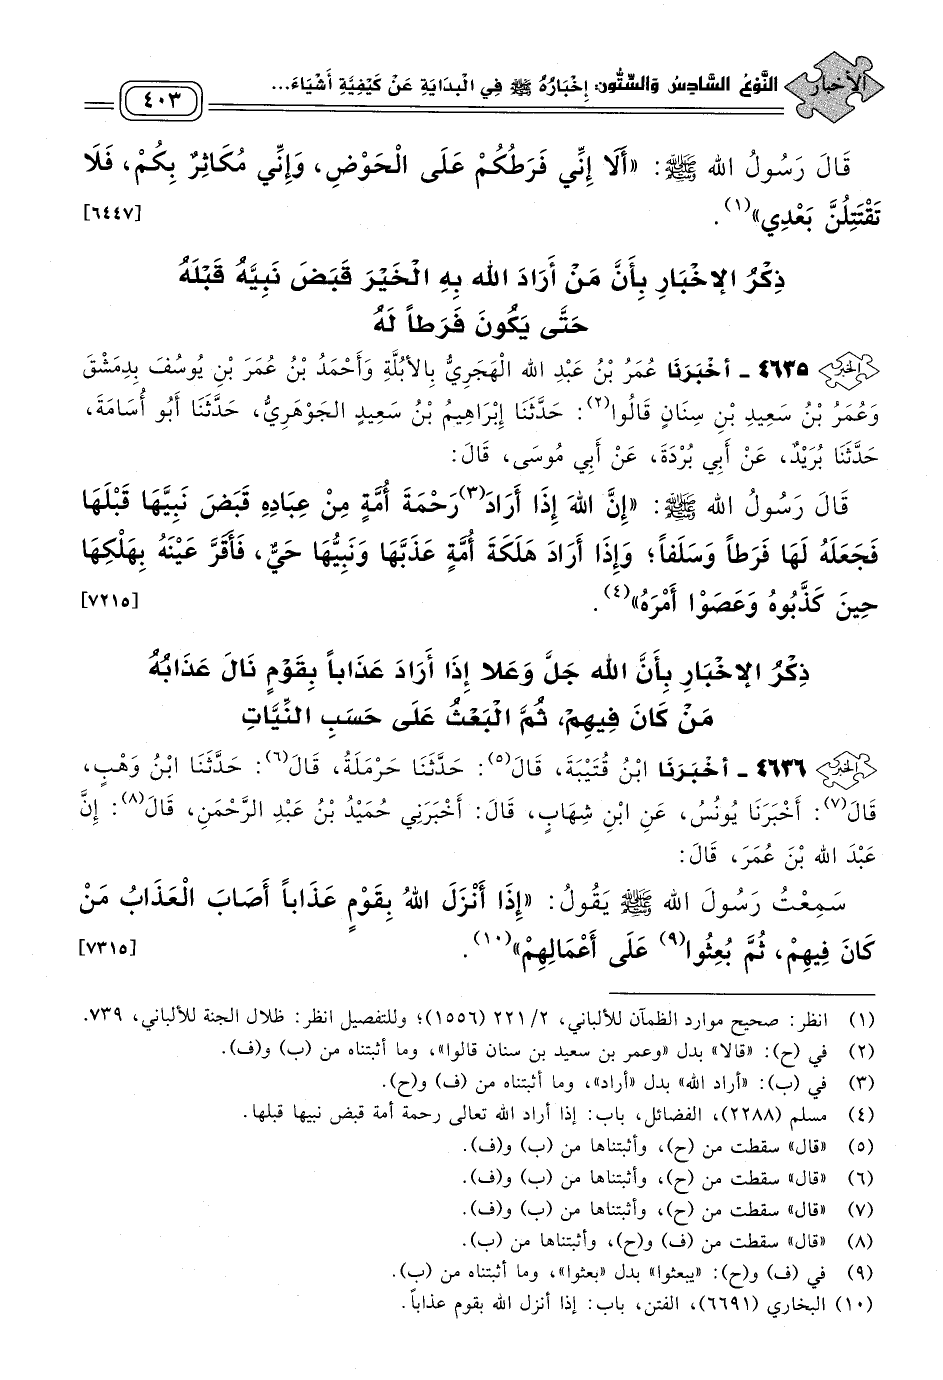 الأخبار
النَّوْعُ السَّادِسُ وَالسِّتُّون: إِخْبَارُهُ ﷺ فِي الْبِدَايَةِ عَنْ كَيْفِيَّةِ أَشْيَاءَ...
٤٠٣
قَالَ رَسُولُ الله ﷺ: «أَلَا إِنِّي فَرَطُكُمْ عَلَى الْحَوْضِ، وَإِنِّي مُكَاثِرٌ بِكُمْ، فَلَا
تَقْتَتِلُنَّ بَعْدِي»(١). [٦٤٤٧]
ذِكْرُ الإِخْبَارِ بِأَنَّ مَنْ أَرَادَ الله بِهِ الْخَيْرَ قَبَضَ نَبِيَّهُ قَبْلَهُ
حَتَّى يَكُونَ فَرَطاً لَهُ
الخبر ٤٦٣٥ - أَخْبَرَنَا عُمَرُ بْنُ عَبْدِ الله الْهَجَرِيُّ بِالأُبُلَّةِ وَأَحْمَدُ بْنُ عُمَرَ بْنِ يُوسُفَ بِدِمَشْقَ
وَعُمَرُ بْنُ سَعِيدِ بْنِ سِنَانٍ قَالُوا(٢): حَدَّثَنَا إِبْرَاهِيمُ بْنُ سَعِيدٍ الْجَوْهَرِيُّ، حَدَّثَنَا أَبُو أُسَامَةَ،
حَدَّثَنَا بُرَيْدٌ، عَنْ أَبِي بُرْدَةَ، عَنْ أَبِي مُوسَى، قَالَ:
قَالَ رَسُولُ الله ﷺ: «إِنَّ اللهَ إِذَا أَرَادَ(٣) رَحْمَةَ أُمَّةٍ مِنْ عِبَادِهِ قَبَضَ نَبِيَّهَا قَبْلَهَا
فَجَعَلَهُ لَهَا فَرَطاً وَسَلَفاً؛ وَإِذَا أَرَادَ هَلَكَةَ أُمَّةٍ عَذَّبَهَا وَنَبِيُّهَا حَيٌّ، فَأَقَرَّ عَيْنَهُ بِهَلْكِهَا
حِينَ كَذَّبُوهُ وَعَصَوْا أَمْرَهُ»(٤). [٧٢١٥]
ذِكْرُ الإِخْبَارِ بِأَنَّ الله جَلَّ وَعَلا إِذَا أَرَادَ عَذَاباً بِقَوْمٍ نَالَ عَذَابُهُ
مَنْ كَانَ فِيهِمْ، ثُمَّ الْبَعْثُ عَلَى حَسَبِ النِّيَّاتِ
الخبر ٤٦٣٦ - أَخْبَرَنَا ابْنُ قُتَيْبَةَ، قَالَ(٥): حَدَّثَنَا حَرْمَلَةُ، قَالَ(٦): حَدَّثَنَا ابْنُ وَهْبٍ،
قَالَ(٧): أَخْبَرَنَا يُونُسُ، عَنِ ابْنِ شِهَابٍ، قَالَ: أَخْبَرَنِي حُمَيْدُ بْنُ عَبْدِ الرَّحْمَنِ، قَالَ(٨): إِنَّ
عَبْدَ الله بْنَ عُمَرَ، قَالَ:
سَمِعْتُ رَسُولَ الله ﷺ يَقُولُ: «إِذَا أَنْزَلَ اللهُ بِقَوْمٍ عَذَاباً أَصَابَ الْعَذَابُ مَنْ
كَانَ فِيهِمْ، ثُمَّ بُعِثُوا(٩) عَلَى أَعْمَالِهِمْ»(١٠). [٧٣١٥]
(١) انظر: صحيح موارد الظمآن للألباني، ٢/ ٢٢١ (١٥٥٦)؛ وللتفصيل انظر: ظلال الجنة للألباني، ٧٣٩.
(٢) في (ح): «قالا» بدل «وعمر بن سعيد بن سنان قالوا»، وما أثبتناه من (ب) و(ف).
(٣) في (ب): «أراد الله» بدل «أراد»، وما أثبتناه من (ف) و(ح).
(٤) مسلم (٢٢٨٨)، الفضائل، باب: إذا أراد الله تعالى رحمة أمة قبض نبيها قبلها.
(٥) «قال» سقطت من (ح)، وأثبتناها من (ب) و(ف).
(٦) «قال» سقطت من (ح)، وأثبتناها من (ب) و(ف).
(٧) «قال» سقطت من (ح)، وأثبتناها من (ب) و(ف).
(٨) «قال» سقطت من (ف) و(ح)، وأثبتناها من (ب).
(٩) في (ف) و(ح): «يبعثوا» بدل «بعثوا»، وما أثبتناه من (ب).
(١٠) البخاري (٦٦٩١)، الفتن، باب: إذا أنزل الله بقوم عذاباً.